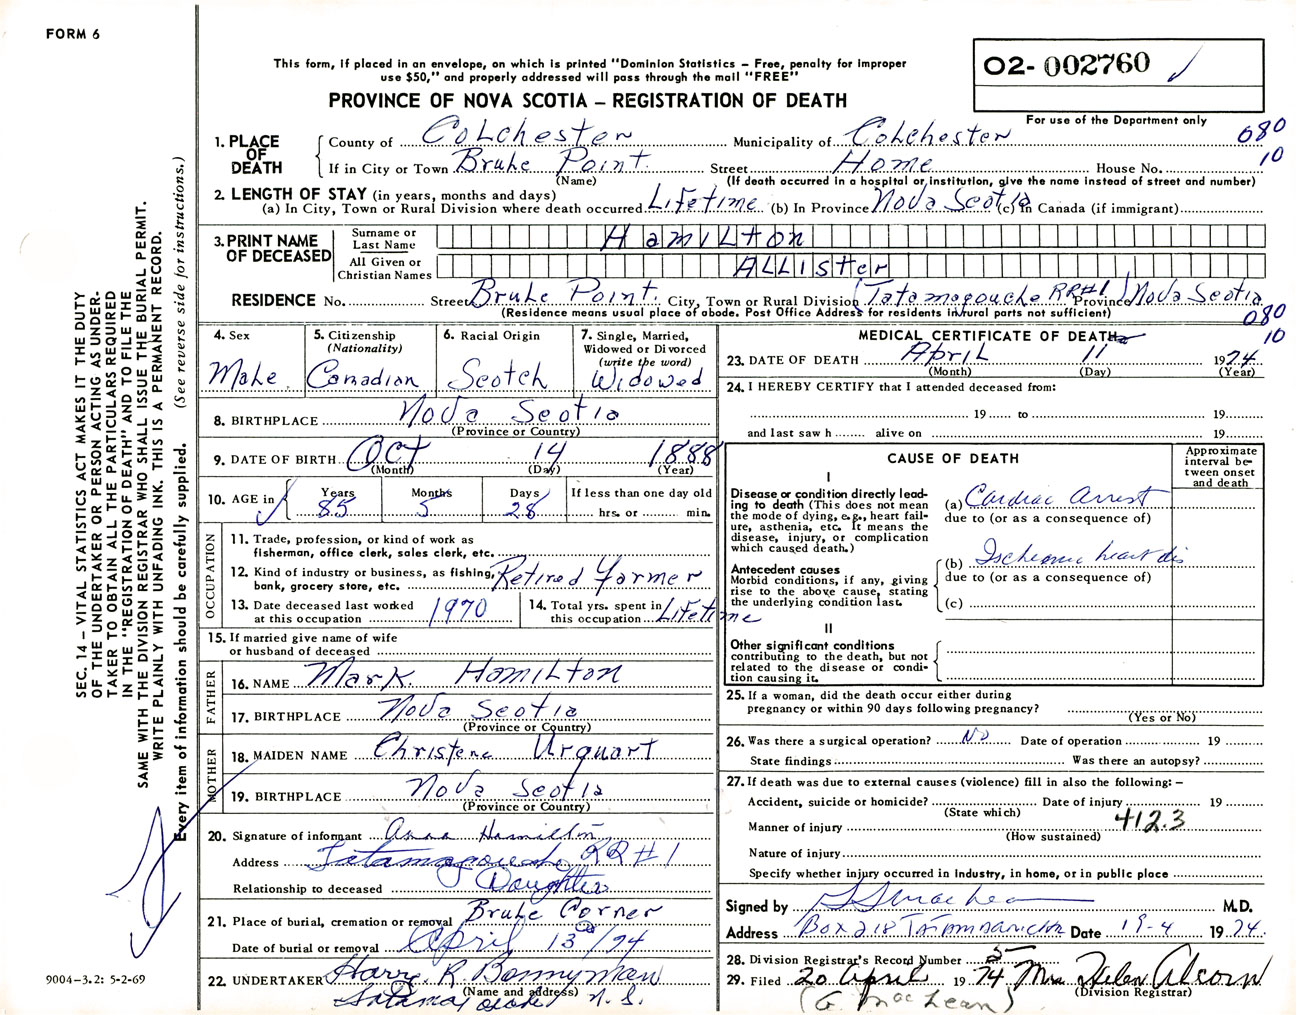 FORM 6
This form, if placed in an envelope, on which is printed "Dominion Statistics – Free, penalty for improper
use $50," and properly addressed will pass through the mail "FREE"
PROVINCE OF NOVA SCOTIA – REGISTRATION OF DEATH
02- 002760
For use of the Department only
080
10
1. PLACE OF DEATH
County of Colchester Municipality of Colchester
If in City or Town Brule Point. Street Home House No.
(Name) (If death occurred in a hospital or institution, give the name instead of street and number)
2. LENGTH OF STAY (in years, months and days)
(a) In City, Town or Rural Division where death occurred Lifetime (b) In Province Nova Scotia (c) In Canada (if immigrant)
3. PRINT NAME OF DECEASED
Surname or Last Name Hamilton
All Given or Christian Names Allister
RESIDENCE No. Street Brule Point. City, Town or Rural Division Tatamagouche RR#1 Province Nova Scotia
(Residence means usual place of abode. Post Office Address for residents in rural parts not sufficient)
080
10
4. Sex
Male
5. Citizenship
(Nationality)
Canadian
6. Racial Origin
Scotch
7. Single, Married,
Widowed or Divorced
(write the word)
Widowed
8. BIRTHPLACE Nova Scotia
(Province or Country)
9. DATE OF BIRTH Oct 14 1888
(Month) (Day) (Year)
10. AGE in
Years Months Days If less than one day old
85 5 28 hrs. or min.
OCCUPATION
11. Trade, profession, or kind of work as
fisherman, office clerk, sales clerk, etc.
12. Kind of industry or business, as fishing,
bank, grocery store, etc. Retired Farmer
13. Date deceased last worked
at this occupation 1970
14. Total yrs. spent in
this occupation Lifetime
15. If married give name of wife
or husband of deceased
FATHER
16. NAME Mark Hamilton
17. BIRTHPLACE Nova Scotia
(Province or Country)
MOTHER
18. MAIDEN NAME Christena Urquart
19. BIRTHPLACE Nova Scotia
(Province or Country)
20. Signature of informant Anna Hamilton
Address Tatamagouche RR#1
Relationship to deceased Daughter
21. Place of burial, cremation or removal Brule Corner
Date of burial or removal April 13 /74
22. UNDERTAKER Harry R. Bonnyman
(Name and address)
Tatamagouche N.S.
MEDICAL CERTIFICATE OF DEATH
23. DATE OF DEATH April 11 1974
(Month) (Day) (Year)
24. I HEREBY CERTIFY that I attended deceased from:
19 to 19
and last saw h alive on 19
CAUSE OF DEATH
Approximate
interval be-
tween onset
and death
I
Disease or condition directly lead-
ing to death (This does not mean
the mode of dying, e.g., heart fail-
ure, asthenia, etc. It means the
disease, injury, or complication
which caused death.)
(a) Cardiac arrest
due to (or as a consequence of)
Antecedent causes
Morbid conditions, if any, giving
rise to the above cause, stating
the underlying condition last.
(b) Ischeamic heart dis
due to (or as a consequence of)
(c)
II
Other significant conditions
contributing to the death, but not
related to the disease or condi-
tion causing it.
25. If a woman, did the death occur either during
pregnancy or within 90 days following pregnancy?
(Yes or No)
26. Was there a surgical operation? No Date of operation 19
State findings Was there an autopsy?
27. If death was due to external causes (violence) fill in also the following: –
Accident, suicide or homicide? Date of injury 19
(State which)
412.3
Manner of injury
(How sustained)
Nature of injury
Specify whether injury occurred in industry, in home, or in public place
Signed by M.D.
Address Box 218 Date 19-4 1974.
28. Division Registrar's Record Number 5
29. Filed 20 April 1974 Mrs Helen Alcorn
(Division Registrar)
(G. MacLean)
SEC. 14 – VITAL STATISTICS ACT MAKES IT THE DUTY
OF THE UNDERTAKER OR PERSON ACTING AS UNDER-
TAKER TO OBTAIN ALL THE PARTICULARS REQUIRED
IN THE "REGISTRATION OF DEATH" AND TO FILE THE
SAME WITH THE DIVISION REGISTRAR WHO SHALL ISSUE THE BURIAL PERMIT.
WRITE PLAINLY WITH UNFADING INK. THIS IS A PERMANENT RECORD.
Every item of information should be carefully supplied. (See reverse side for instructions.)
9004–3.2: 5-2-69